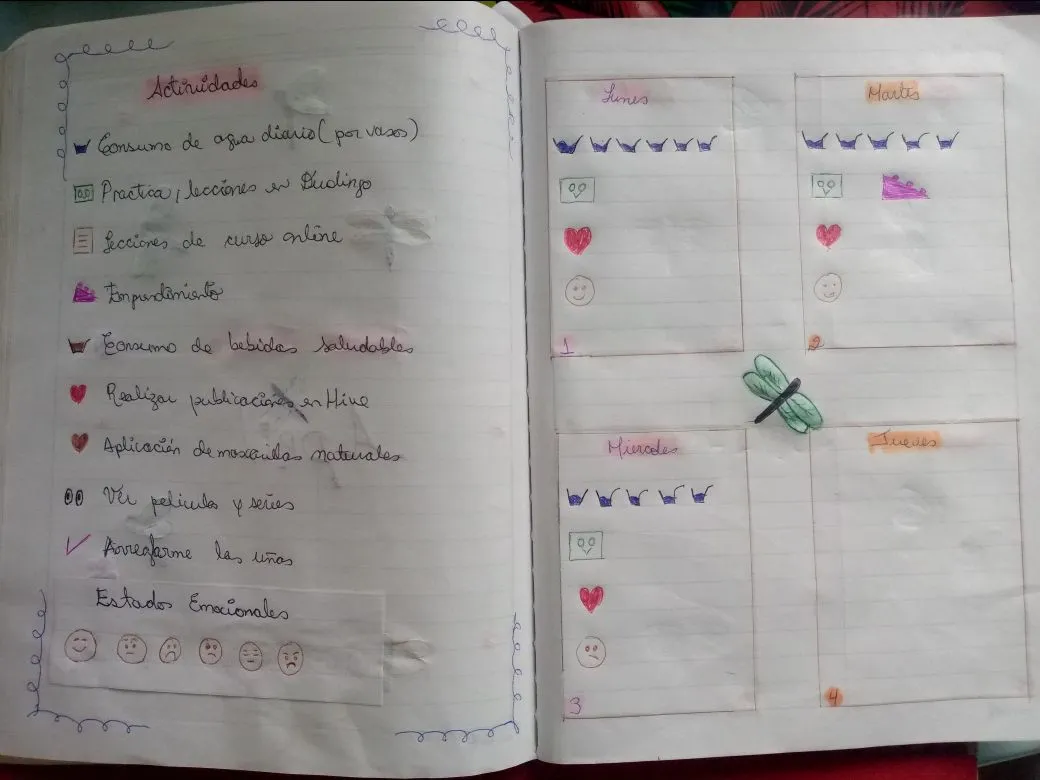 Actividades
Consumo de agua diario (por vasos)
Practica, lecciones en Duolingo
Lecciones de curso online
Emprendimiento
Consumo de bebidas saludables
Realizar publicaciones en Hive
Aplicación de mascarillas naturales
Ver peliculas y series
Arreglarme las uñas
Estados Emocionales
Lunes
1
Martes
2
Miercoles
3
Jueves
4